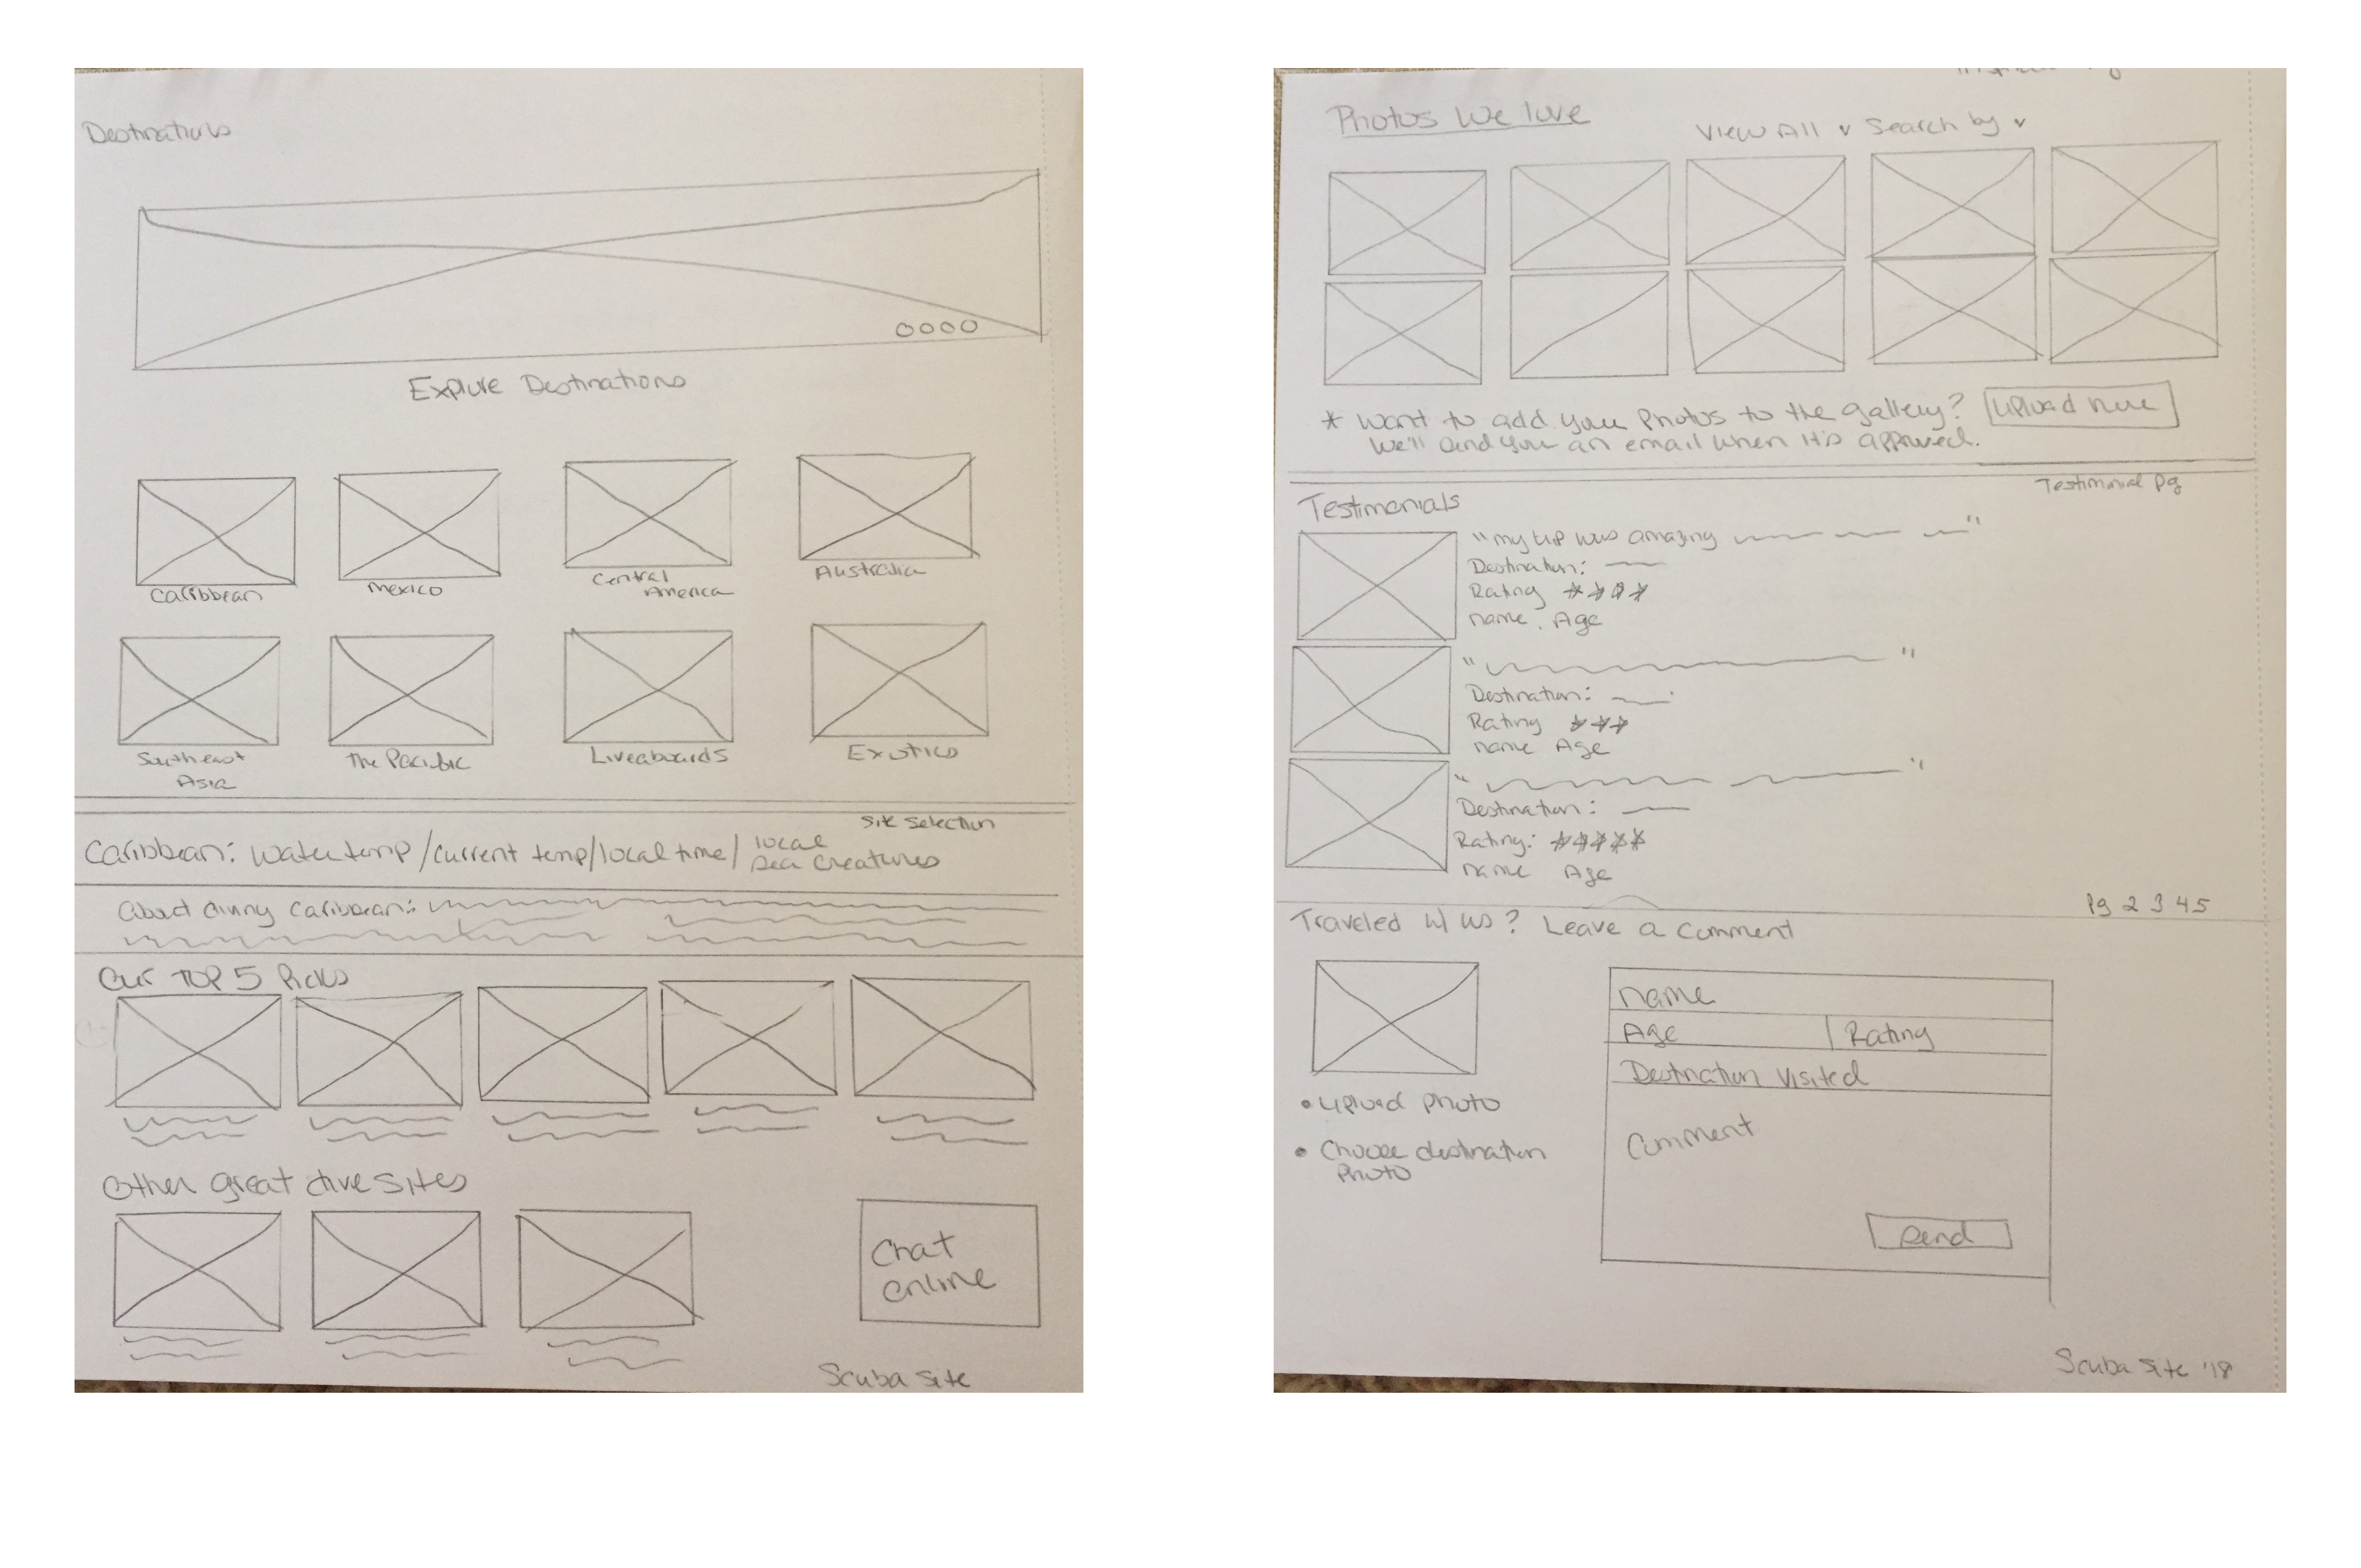 Destinations
Explore Destinations
Caribbean
Mexico
Central
America
Australia
Southeast
Asia
The Pacific
Liveaboards
Exotics
Site Selection
Caribbean: Water temp/current temp/local time/ local
sea creatures
About diving Caribbean:
Our TOP 5 Picks
Other great dive sites
Chat
online
Scuba Site
Photos We love
View All v Search by v
* Want to add your Photos to the gallery? Upload here
We'll send you an email when it's approved.
Testimonial Pg
Testimonials
"my trip was amazing "
Destination:
Rating ****
name, Age
" "
Destination:
Rating ***
name Age
" "
Destination:
Rating: *****
name Age
Pg 2 3 4 5
Traveled w/ us? Leave a comment
• Upload photo
• Choose destination
Photo
Name
Age | Rating
Destination Visited
Comment
Send
Scuba Site '18